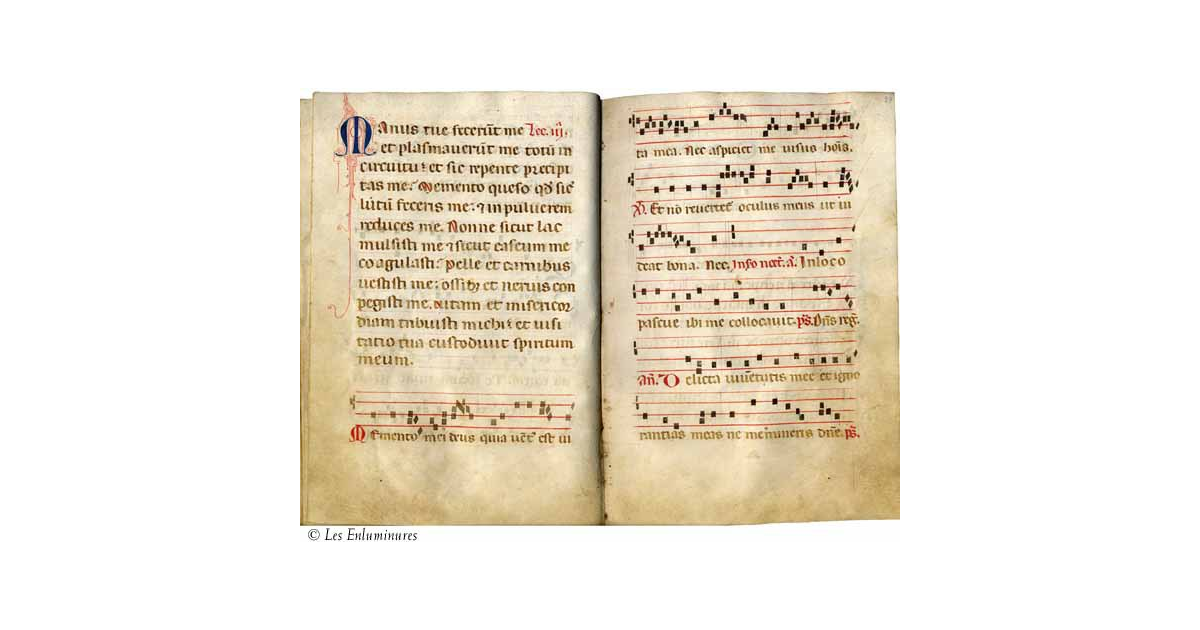 Manus tue fecerūt me Lec. iij.
et plasmaverūt me totū in
circuitu: et sic repente precipi
tas me. Memento queso qd sic
lutū feceris me: ⁊ in pulverem
reduces me. Nonne sicut lac
mulsisti me ⁊ sicut caseum me
coagulasti. Pelle et carnibus
vestisti me: ossib; et nervis con
pegisti me. Vitam et misericor
diam tribuisti michi: et visi
tatio tua custodivit spiritum
meum.
Memento mei deus quia vent est vi
ta mea. Nec aspiciet me visus hoīs.
V. Et nō revertet oculus meus ut vi
deat bona. Nec. In so noct. a. In loco
pascue ibi me collocavit. ps. Dn̄s reg.
an. Delicta iuvētutis mee et igno
rantias meas ne memineris dn̄e. ps.
© Les Enluminures